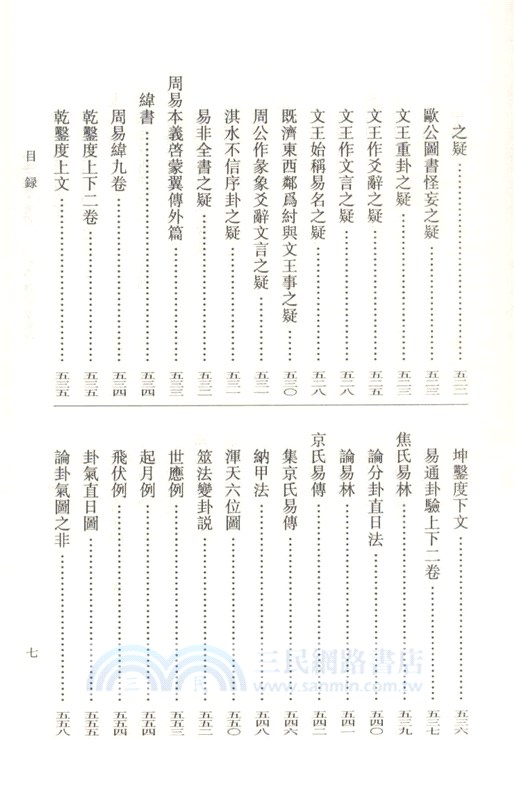 之疑……五二二
歐公圖書怪妄之疑……五二三
文王重卦之疑……五二三
文王作爻辭之疑……五二五
文王作文言之疑……五二八
文王始稱易名之疑……五二八
既濟東西鄰爲紂與文王事之疑……五三〇
周公作彖象爻辭文言之疑……五三一
淇水不信序卦之疑……五三一
易非全書之疑……五三二
周易本義啓蒙翼傳外篇……五三三
緯書……五三四
周易緯九卷……五三四
乾鑿度上下二卷……五三五
乾鑿度上文……五三五
坤鑿度下文……五三六
易通卦驗上下二卷……五三七
焦氏易林……五三九
論分卦直日法……五四〇
論易林……五四一
京氏易傳……五四二
集京氏易傳……五四六
納甲法……五四八
渾天六位圖……五五〇
筮法變卦説……五五二
世應例……五五三
起月例……五五四
飛伏例……五五四
卦氣直日圖……五五五
論卦氣圖之非……五五八
目録
七
三民網路書店
www.sanmin.com.tw
三民